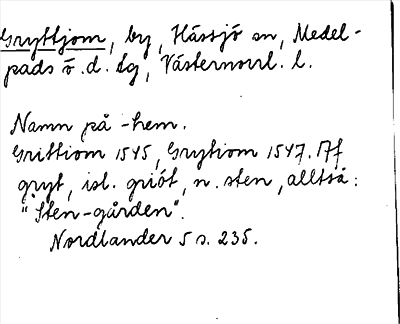 Gryttjom, by, Hässjö sn, Medel-
pads ö. d. tg, Västernorrl. l.
Namn på -hem.
Grittiom 1545, Grytiom 1547. Aff
gryt, isl. griót, n. sten, alltså:
"Sten-gården".
Nordlander 5 s. 235.